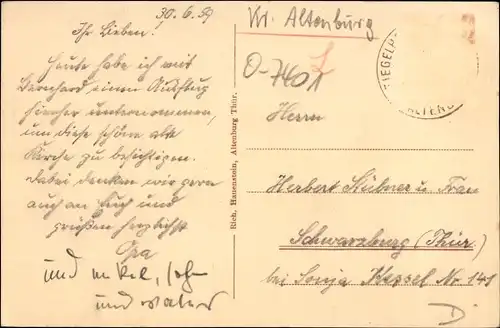 30.6.59
Ihr Lieben!
Heute habe ich mit
Bernhard einen Ausflug
hierher unternommen,
um diese schöne alte
Kirche zu besichtigen.
Dabei denken wir gern
auch an Euch und
grüßen herzlichst
Opa
und Enkel, Sohn
und Vater
Rich. Hauenstein, Altenburg Thür.
Kr. Altenburg
O-7401
Herrn
Herbert Stübner u. Frau
Schwarzburg (Thür.)
bei Sonja Kessel Nr. 141
D